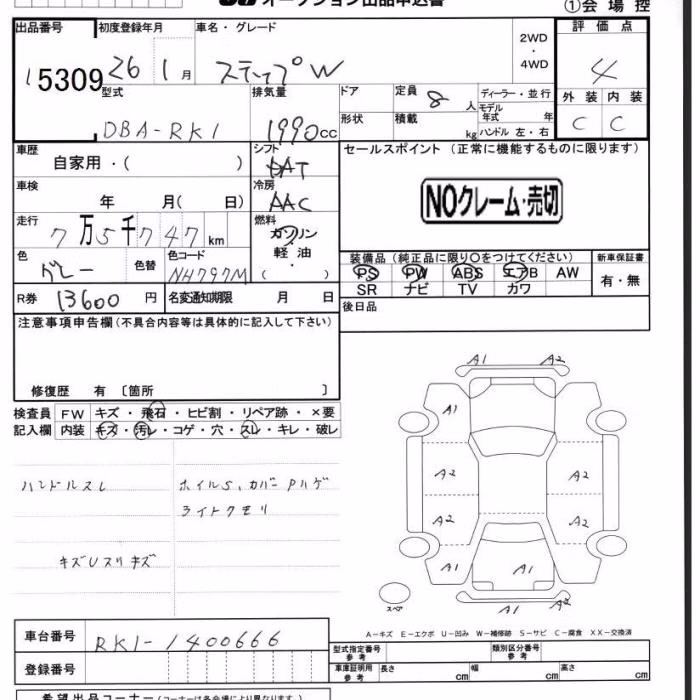 オークション出品申込書
①会場控
出品番号
15309
初度登録年月
26 1月
車名・グレード
ステップW
2WD
・
4WD
評価点
4
外装 内装
C C
型式
DBA-RK1
排気量
1990cc
ドア
形状
定員 8人
積載 kg
ディーラー・並行
モデル年式 年
ハンドル 左・右
車歴
自家用・( )
シフト
DAT
セールスポイント (正常に機能するものに限ります)
NOクレーム・売切
車検
年 月( 日)
冷房
AAC
走行
7万5千747km
燃料
ガソリン
軽油
( )
色
グレー
色替
色コード
NH797M
装備品(純正品に限り○をつけてください)
PS PW ABS エアB AW
SR ナビ TV カワ
新車保証書
有・無
R券 13600円
名変通知期限 月 日
後日品
注意事項申告欄(不具合内容等は具体的に記入して下さい)
修復歴 有 〔箇所 〕
検査員
記入欄
FW キズ・飛石・ヒビ割・リペア跡・×要
内装 キズ・汚レ・コゲ・穴・スレ・キレ・破レ
ハンドルスレ
ホイルS、カバーPハゲ
ライトクモリ
キズUスリキズ
A1 A2
A1
A2 A2
A2 A2
A1 A1 A1
A2
スペア
A-キズ E-エクボ U-凹み W-補修跡 S-サビ C-腐食 XX-交換済
車台番号
RK1-1400666
登録番号
型式指定番号
参考
類別区分番号
参考
車庫証明用
参考
長さ cm 幅 cm 高さ cm
希望出品コーナー(コーナーは各会場により異なります)